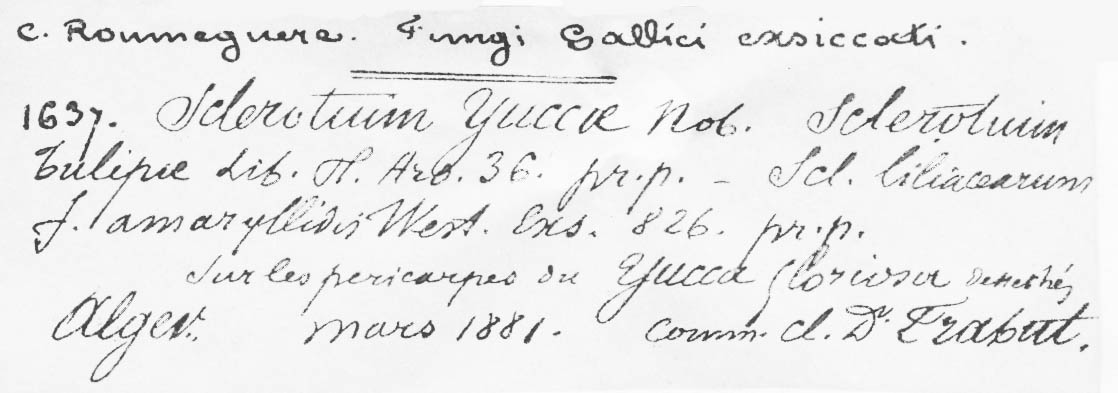 C. Roumeguere. Fungi Gallici exsiccati.
1637. Sclerotium Yuccæ Nob. Sclerotium
tulipæ Lib. Pl. Ard. 36. pr. p. – Scl. liliacearum
f. amaryllidis West. Exs. 826. pr. p.
Sur les pericarpes du Yucca gloriosa
Alger. mars 1881. comm. cl. Dr. Trabut.